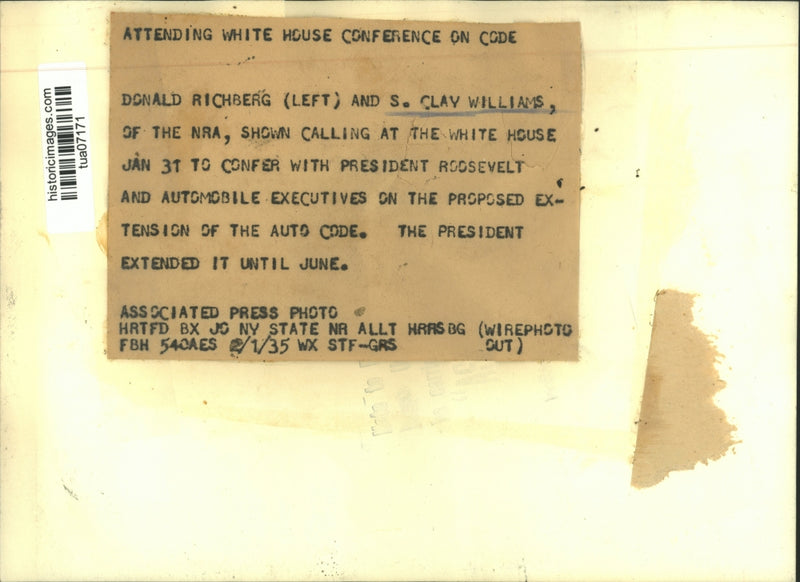 ATTENDING WHITE HOUSE CONFERENCE ON CODE
DONALD RICHBERG (LEFT) AND S. CLAY WILLIAMS,
OF THE NRA, SHOWN CALLING AT THE WHITE HOUSE
JAN 31 TO CONFER WITH PRESIDENT ROOSEVELT
AND AUTOMOBILE EXECUTIVES ON THE PROPOSED EX-
TENSION OF THE AUTO CODE. THE PRESIDENT
EXTENDED IT UNTIL JUNE.
ASSOCIATED PRESS PHOTO
HRTFD BX JO NY STATE NR ALLT HRRSBG (WIREPHOTO
FBH 540AES 2/1/35 WX STF-GRS OUT)
historicimages.com
tua07171